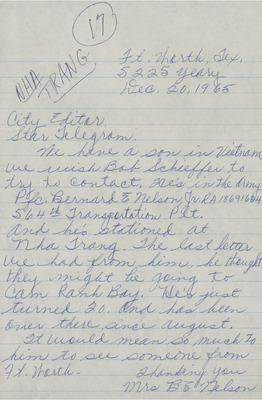 17
NHA
TRANG
Ft. Worth, Tex.
5225 Yeary
Dec. 20, 1965
City Editor
Star Telegram.
We have a son in Vietnam
we wish Bob Schieffer to
try to contact. He's in the Army
Pfc. Bernard E Nelson, Jr. RA
564th Transportation Plt.
and he's stationed at
Nha Trang. The last letter
we had from him, he thought
they might be going to
Cam Ranh Bay. He's just
turned 20. and has been
over there since August.
It would mean so much to
him to see someone from
Ft. Worth.
Thanking you
Mrs B E Nelson